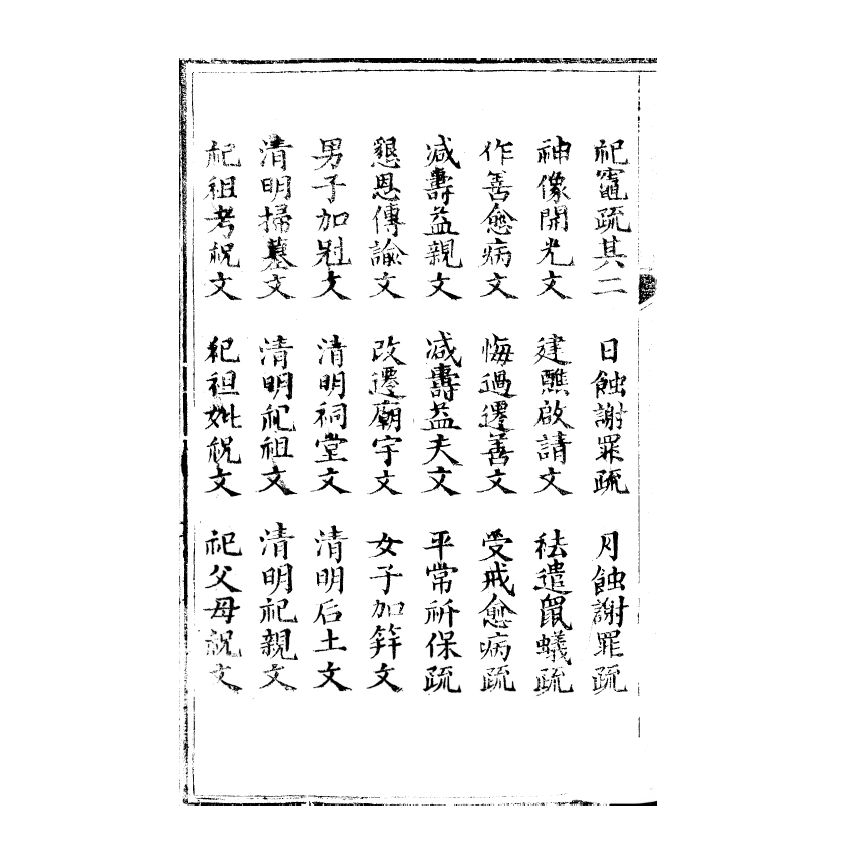 祀竈疏其二 日蝕謝罪疏 月蝕謝罪疏
神像開光文 建醮啟請文 祛遣鼠蟻疏
作善愈病文 悔過遷善文 受戒愈病疏
减壽益親文 减壽益夫文 平常祈保疏
懇恩傳諭文 改遷廟宇文 女子加笄文
男子加冠文 清明祠堂文 清明后土文
清明掃墓文 清明祀祖文 清明祀親文
祀祖考祝文 祀祖妣祝文 祀父母祝文